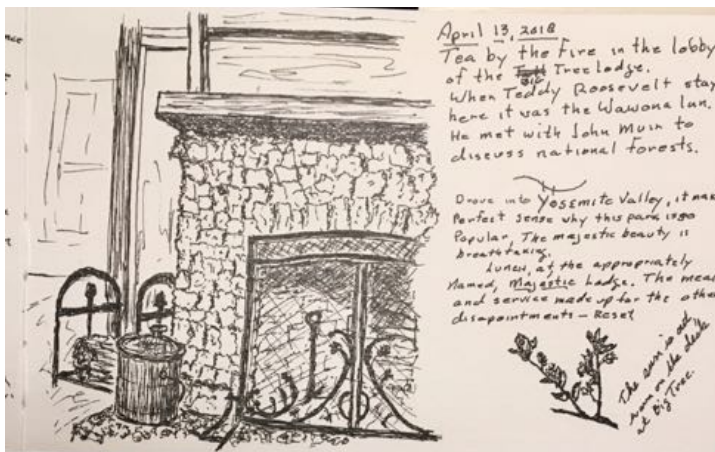 April 13, 2018
Tea by the fire in the lobby
of the Big Tree lodge.
When Teddy Roosevelt stay
here it was the Wawona Inn.
He met with John Muir to
discuss national forests.
Drove into Yosemite Valley, it mak
Perfect sense why this park is so
Popular. The majestic beauty is
breathtaking.
Lunch, at the appropriately
Named, Majestic Lodge. The meal
and service made up for the othe
disapointments - Reset
The sun is out
warm on the deck
at Big Tree.